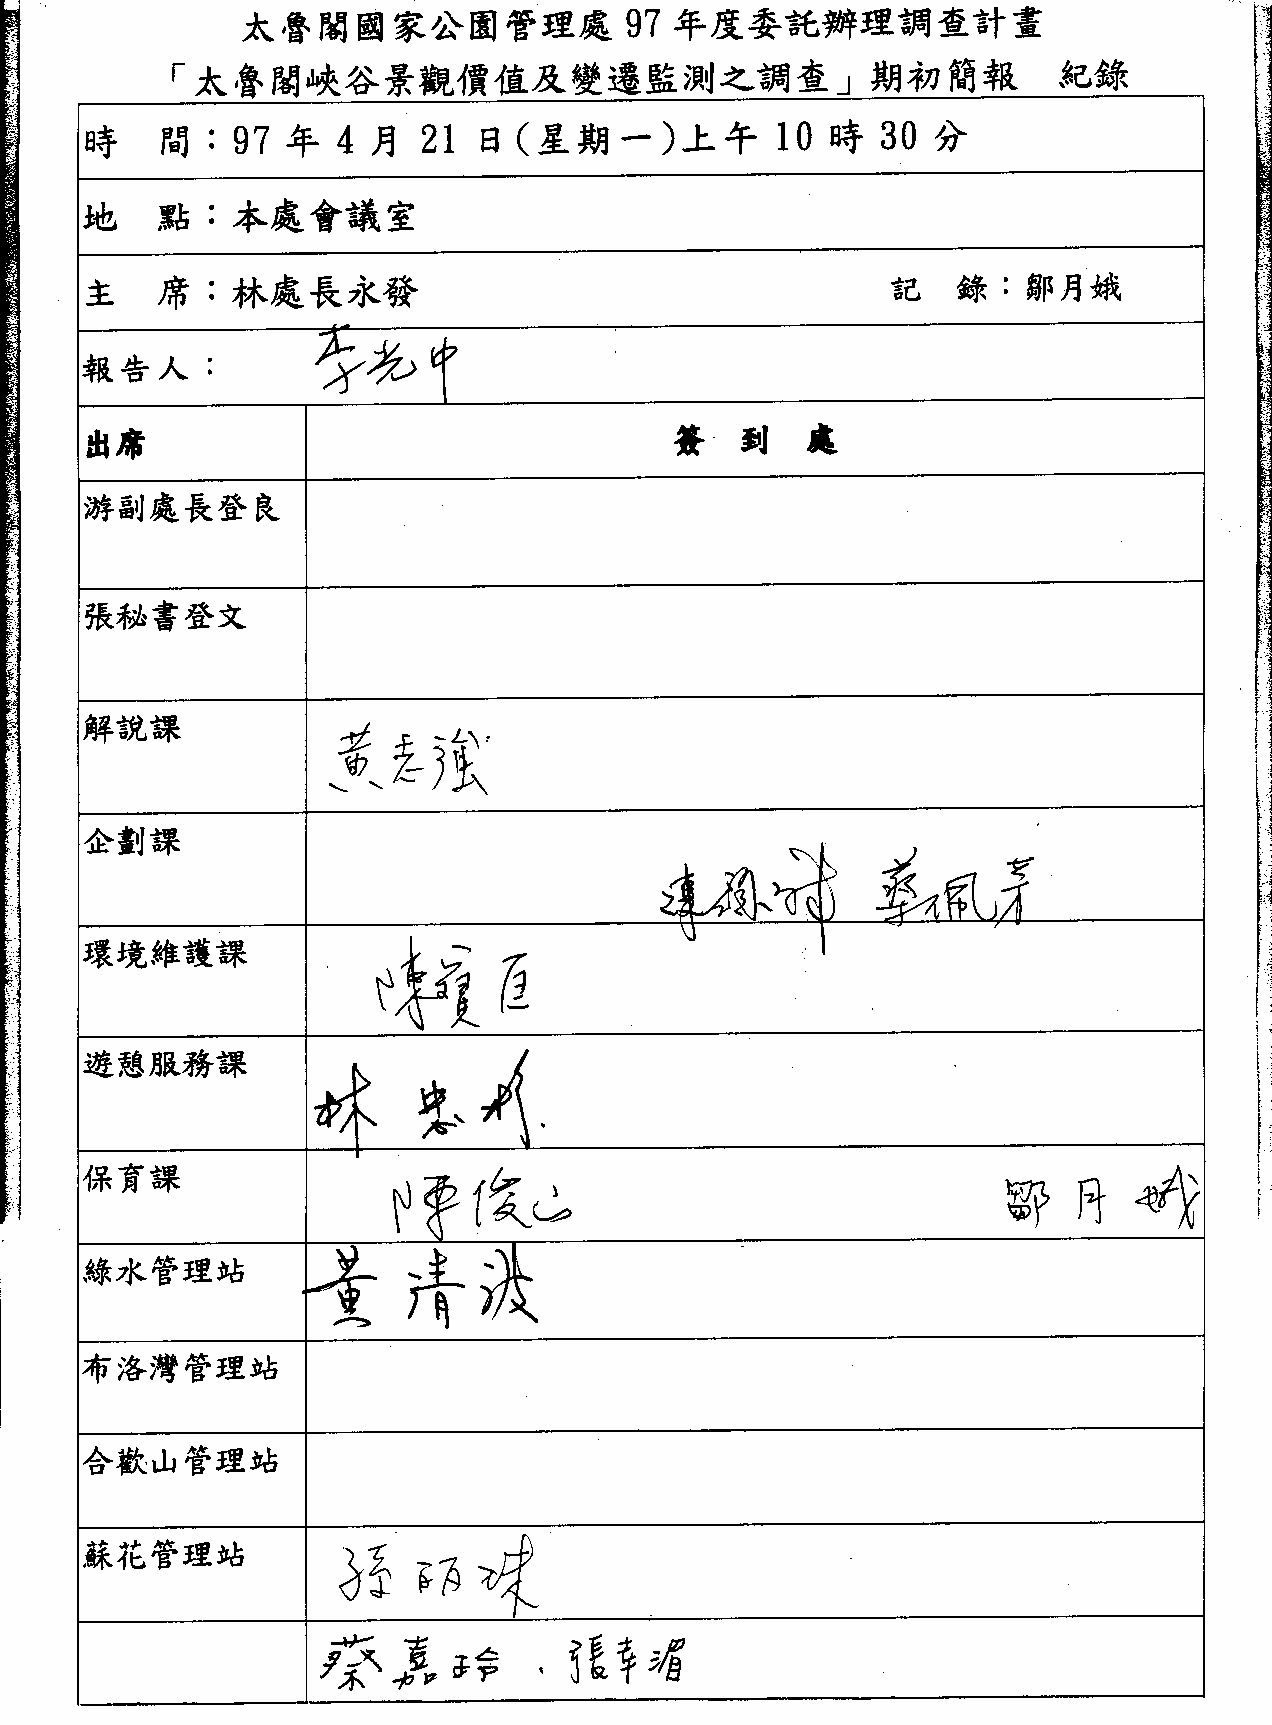 太魯閣國家公園管理處 97 年度委託辦理調查計畫
「太魯閣峽谷景觀價值及變遷監測之調查」期初簡報　紀錄
時　間：97 年 4 月 21 日(星期一)上午 10 時 30 分
地　點：本處會議室
主　席：林處長永發　記　錄：鄒月娥
報告人：李光中
出席　簽 到 處
游副處長登良
張秘書登文
解說課　黃志強
企劃課　陳　蔡佩芳
環境維護課　陳寶匡
遊憩服務課　林忠杉
保育課　陳俊山　鄒月娥
綠水管理站　黃清波
布洛灣管理站
合歡山管理站
蘇花管理站　孫丽珠
蔡嘉玲．張幸湄